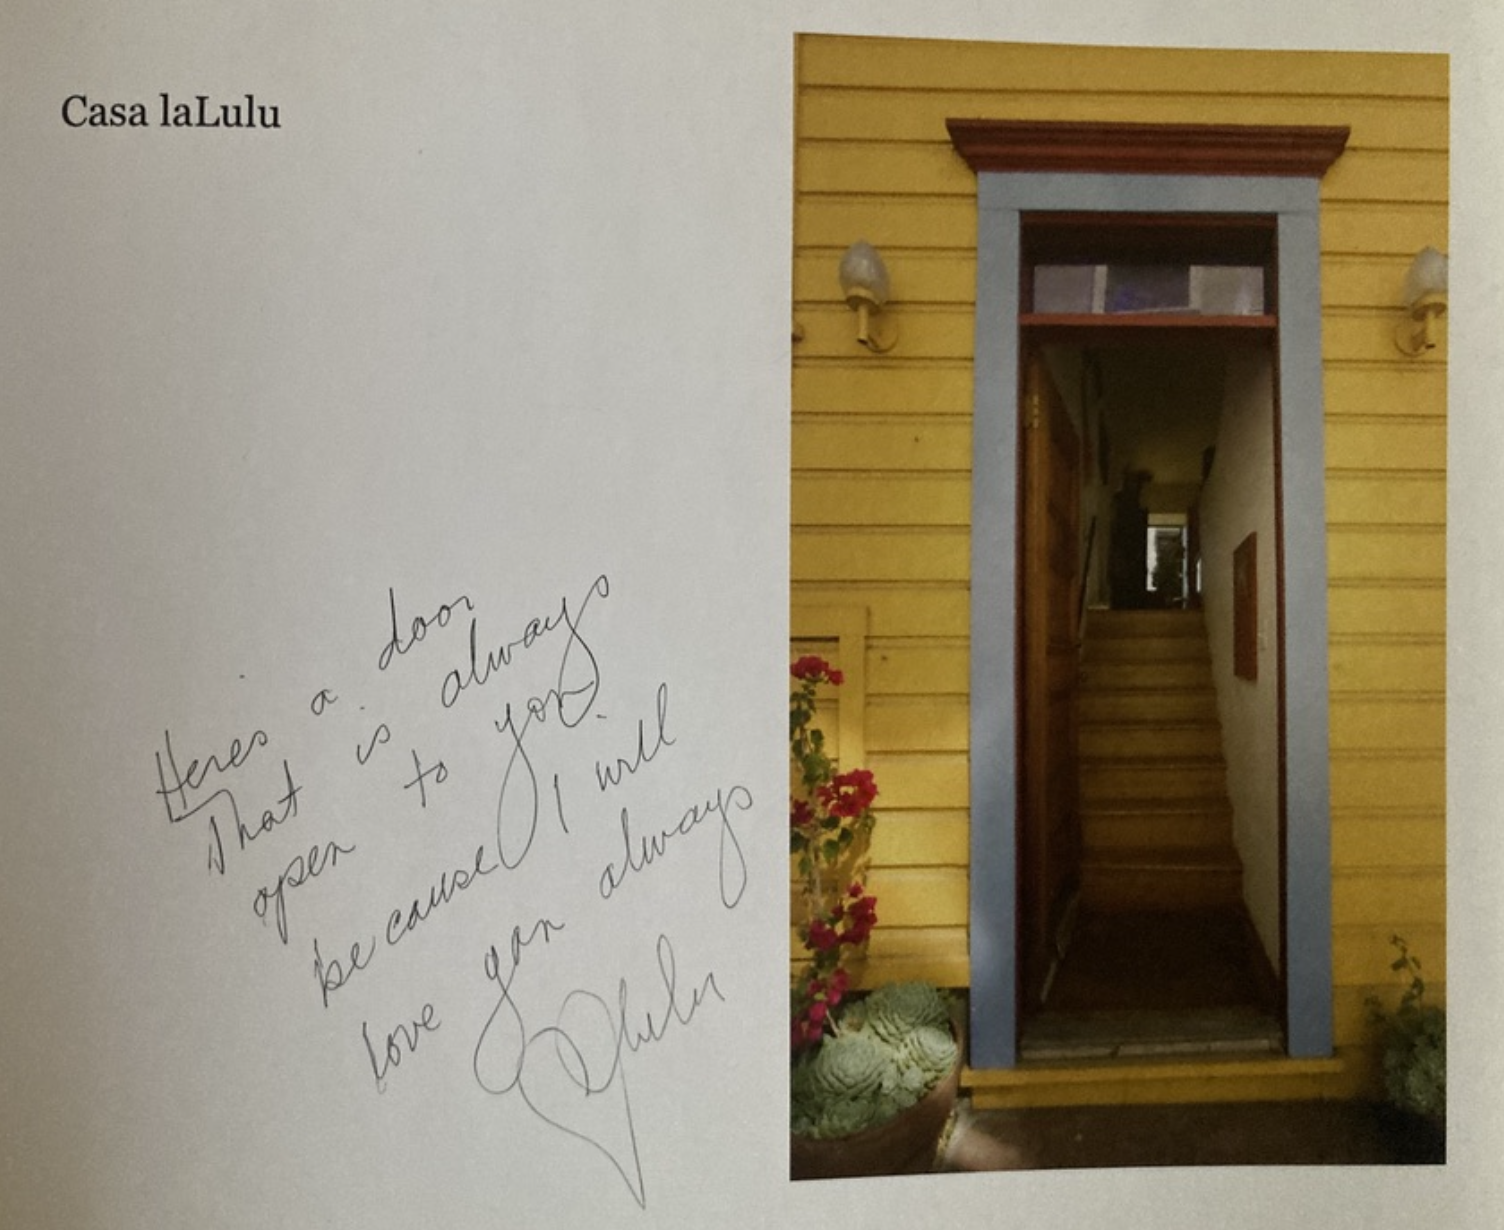 Casa laLulu
Heres a door
That is always
open to you
because I will
love you always
Lulu